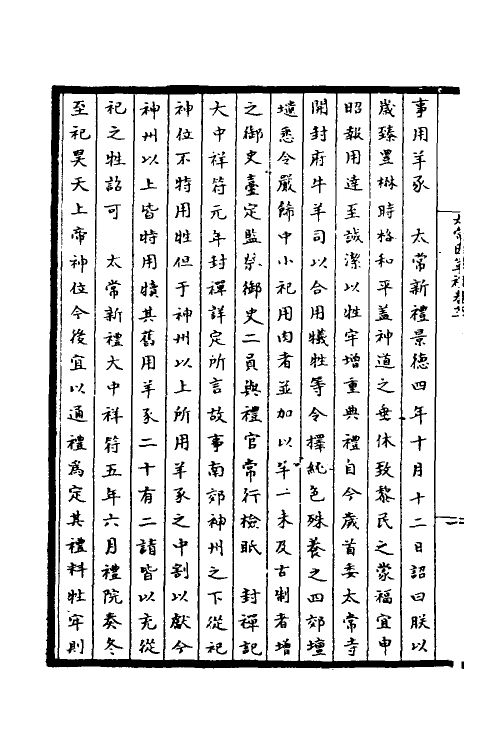 事用羊豕　太常新禮景德四年十月十二日詔曰朕以
歲臻豐楙時格和平蓋神道之垂休致黎民之蒙福宜申
昭報用達至誠潔以牲牢增重典禮自今歲首委太常寺
開封府牛羊司以合用犧牲等令擇純色殊養之四郊壇
壝悉令嚴飾中小祀用肉者並加以羊一未及古制者增
之御史臺定監祭御史二員與禮官常行檢眂　封禪記
大中祥符元年封禪詳定所言故事南郊神州之下從祀
神位不特用牲但于神州以上所用羊豕之中割以獻今
神州以上皆特用犢其舊用羊豕二十有二請皆以充從
祀之牲詔可　太常新禮大中祥符五年六月禮院奏冬
至祀昊天上帝神位今後宜以通禮為定其禮料牲牢則